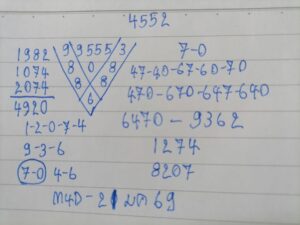 4552
1982
1074
2074
4920
1-2-0-7-4
9-3-6
7-0 4-6
995553
8 0 8
8 8
6
7-0
47-40-67-60-70
470-670-647-640
6470-9362
1274
8207
2 มค 69